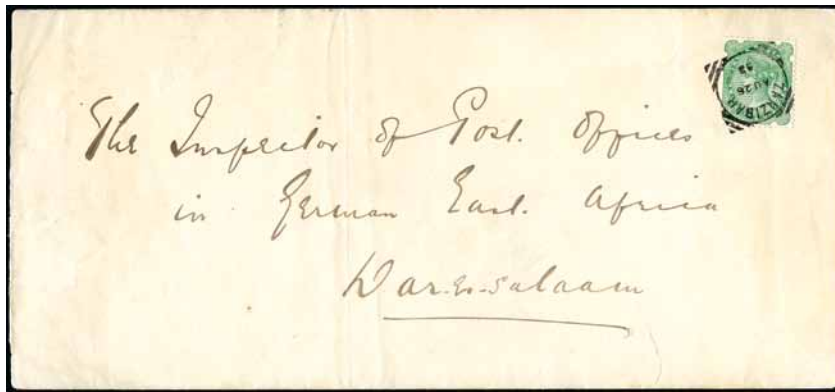 ZANZIBAR
AU 26
93
The Inspector of Post. Offices
in German East. Africa
Dar-es-salaam